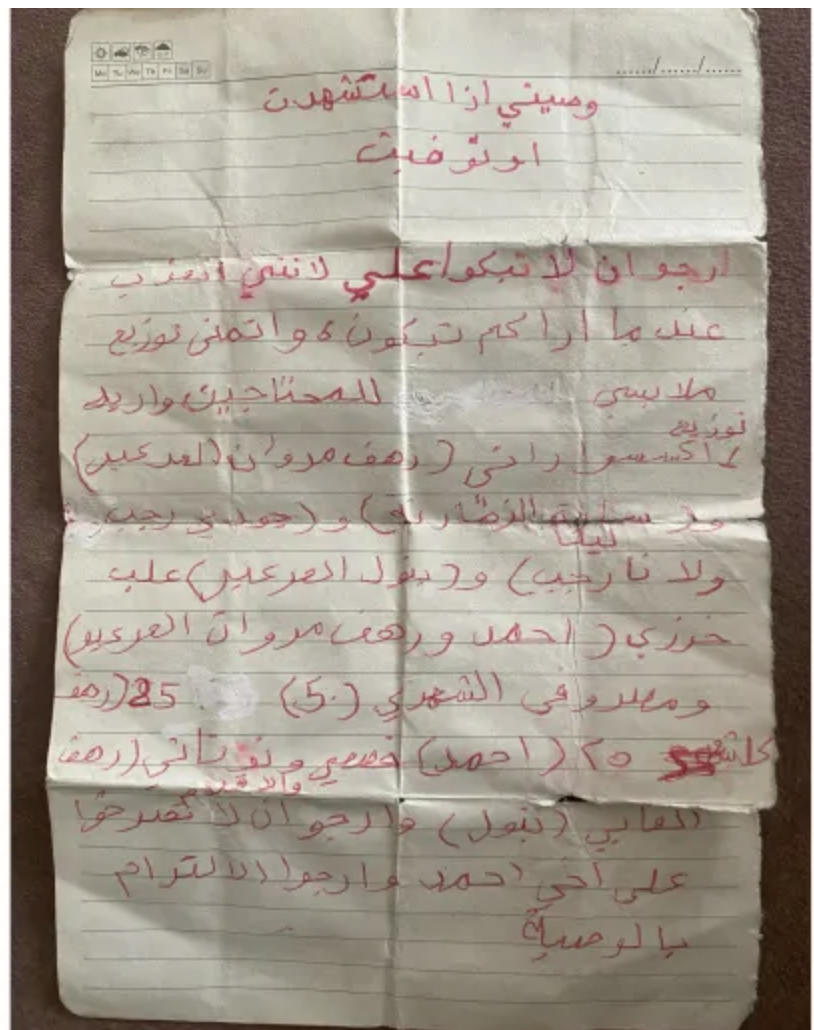 Mo Tu We Th Fr Sa Su
....../....../......
وصيتي اذا استشهدت
او توفيت
ارجو ان لا تبكوا علي لانني اتعذب
عندما اراكم تبكون، واتمنى توزيع
ملابسي للمحتاجين واريد
توزيع
اكسسواراتي (رهف مروان العرعير)
و( ليانا) و(جودي رجب
ولانا رجب) و(بتول العرعير) علب
خرزي (احمد ورهف مروان العرعير)
ومصروفي الشهري (50) 25 (رهف
كلشهر ٢٥ (احمد) قصصي ودفتاتي (رهف
والاقلام
العابي (بتول) وارجو ان لا تصرخوا
على اخي احمد وارجوا الالتزام
بالوصية